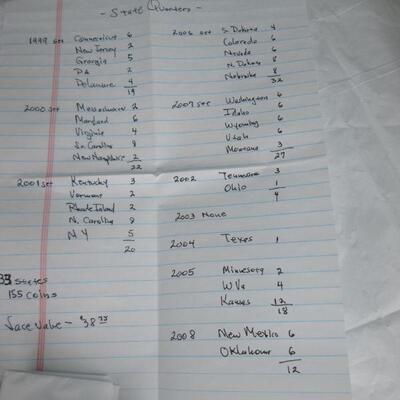 - State Quarters -
1999 set Connecticut 6
New Jersey 2
Georgia 5
PA 2
Delaware 4
19
2000 set Massachusetts 2
Maryland 6
Virginia 4
So. Carolina 8
New Hampshire 2
22
2001 set Kentucky 3
Vermont 2
Rhode Island 2
N. Carolina 8
NY 5
20
33 States
155 coins
Face Value - $38.75
2006 set S. Dakota 4
Colorado 6
Nevada 6
N. Dakota 8
Nebraska 8
32
2007 set Washington 6
Idaho 6
Wyoming 6
Utah 6
Montana 3
27
2002 Tennessee 3
Ohio 1
4
2003 None
2004 Texas 1
2005 Minnesota 2
W Va 4
Kansas 12
18
2008 New Mexico 6
Oklahoma 6
12